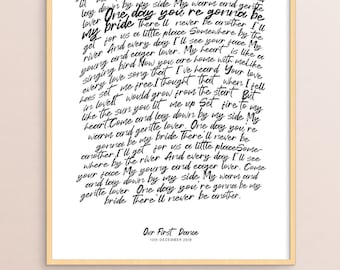 lay down by my side My warm and gentle
lover One day you're gonna be
my bride there'll never be another. I'll
get for us a little place Somewhere by the
river And every day I'll see your face My
young and eager lover. My heart is like a
singing bird Now you are home with me Like
every love song that I've heard Your love
has set me free. I thought that when I fell
in love It would grow from the start But
like the sun you lit me up Set fire to my
heart. Come and lay down by my side My
warm and gentle lover. One day you're
gonna be my bride there'll never be
another. I'll get for us a little place Some-
where by the river And every day I'll see
your face My young and eager lover. Come
and lay down by my side My warm and
gentle lover One day you're gonna be my
bride there'll never be another.
Our First Dance
10th DECEMBER 2018